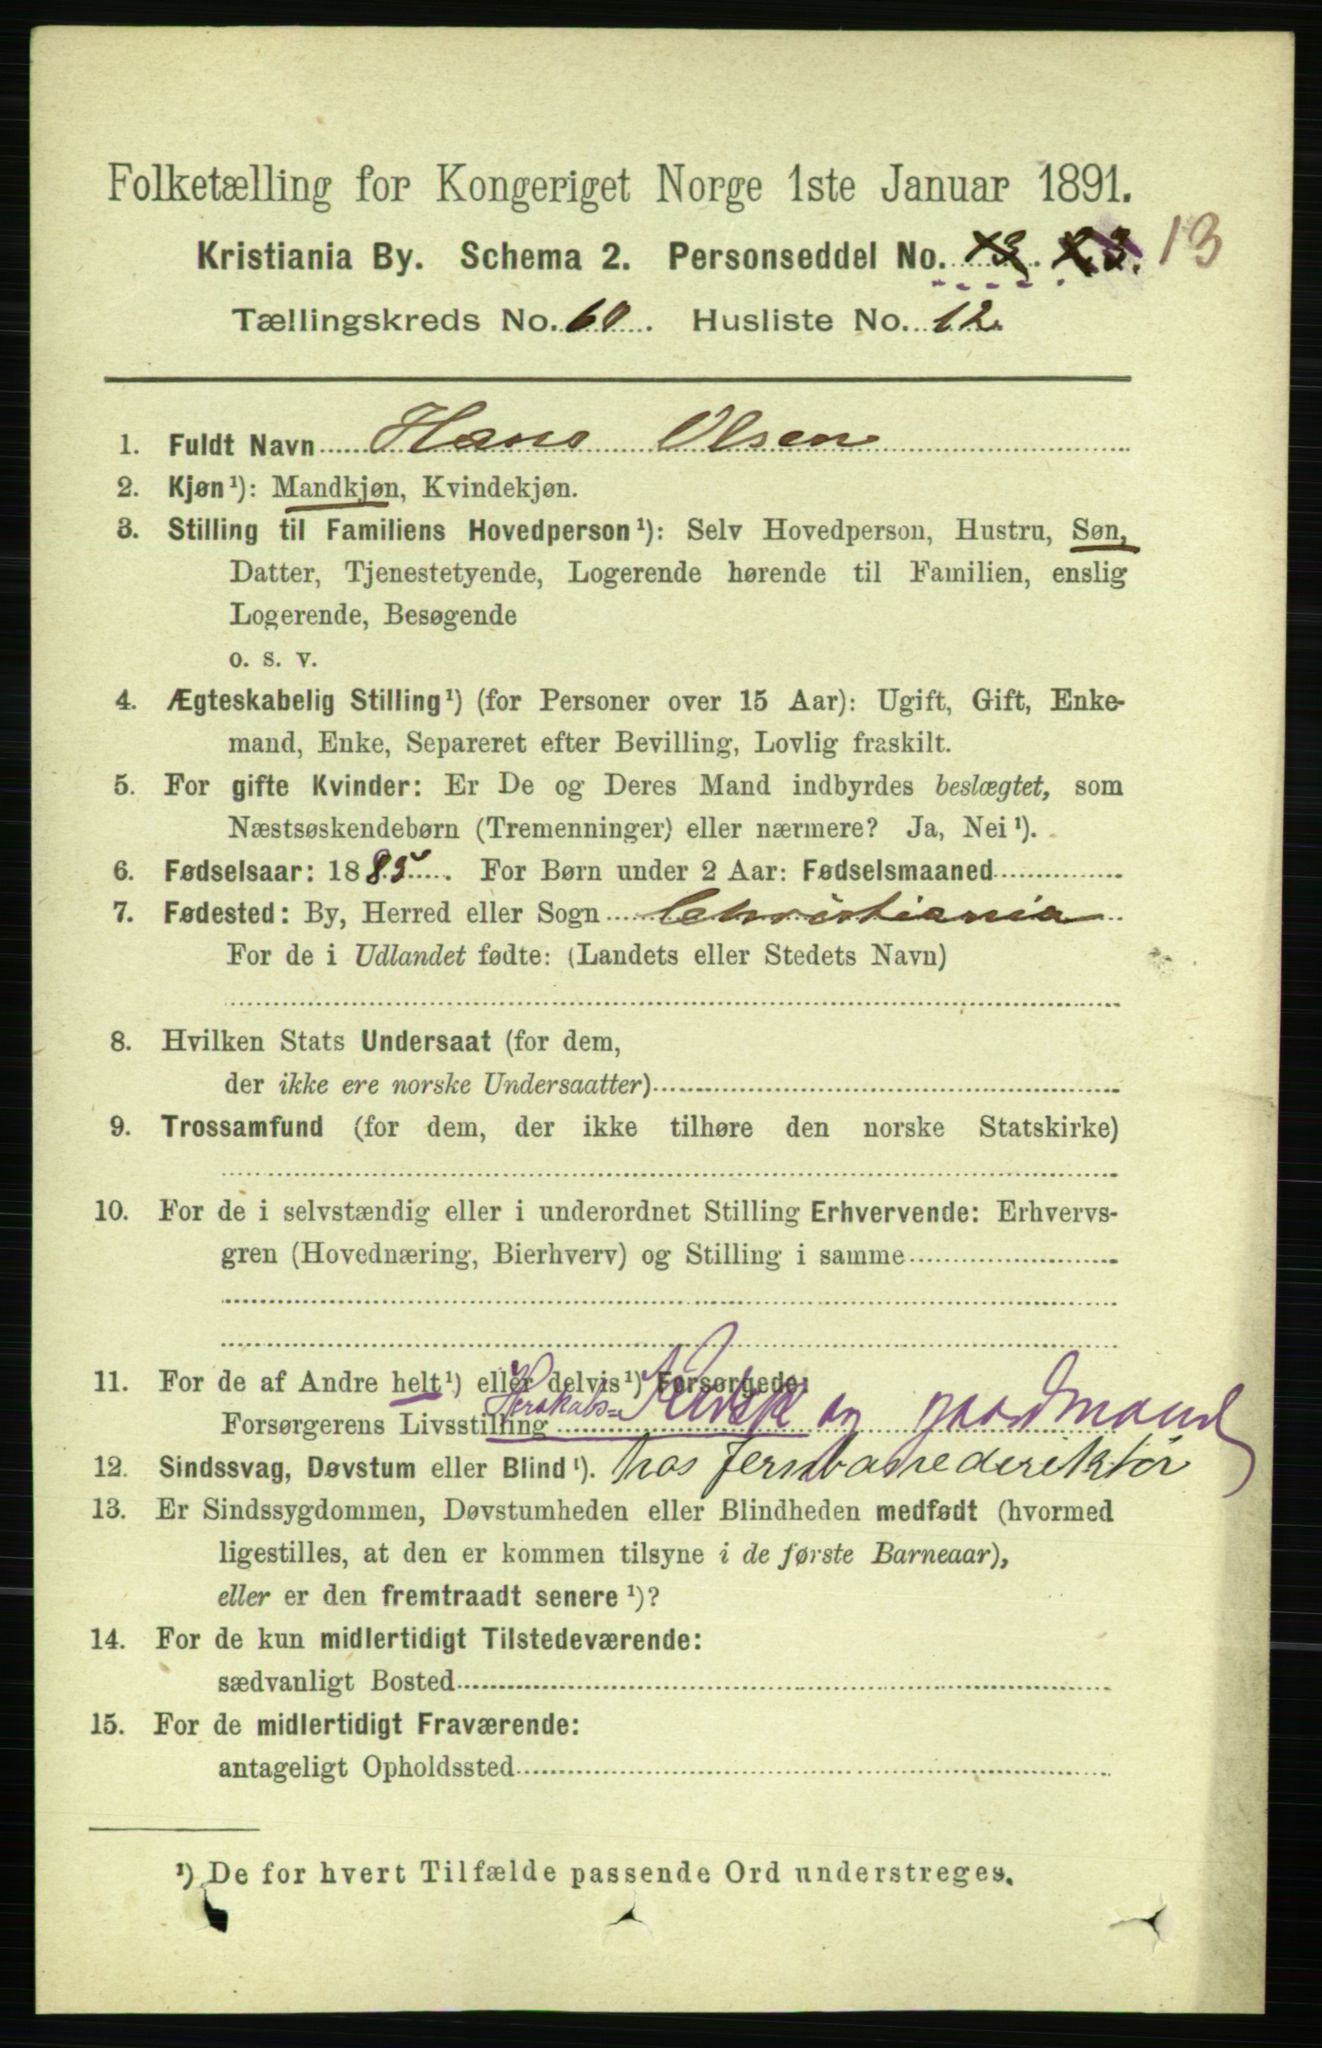 Folketælling for Kongeriget Norge 1ste Januar 1891.
Kristiania By. Schema 2. Personseddel No. 13
Tællingskreds No. 60. Husliste No. 12.
1. Fuldt Navn Hans Olsen
2. Kjøn¹): Mandkjøn, Kvindekjøn.
3. Stilling til Familiens Hovedperson¹): Selv Hovedperson, Hustru, Søn,
Datter, Tjenestetyende, Logerende hørende til Familien, enslig
Logerende, Besøgende
o. s. v.
4. Ægteskabelig Stilling¹) (for Personer over 15 Aar): Ugift, Gift, Enke-
mand, Enke, Separeret efter Bevilling, Lovlig fraskilt.
5. For gifte Kvinder: Er De og Deres Mand indbyrdes beslægtet, som
Næstsøskendebørn (Tremenninger) eller nærmere? Ja, Nei¹).
6. Fødselsaar: 1885. For Børn under 2 Aar: Fødselsmaaned
7. Fødested: By, Herred eller Sogn Christiania
For de i Udlandet fødte: (Landets eller Stedets Navn)
8. Hvilken Stats Undersaat (for dem,
der ikke ere norske Undersaatter)
9. Trossamfund (for dem, der ikke tilhøre den norske Statskirke)
10. For de i selvstændig eller i underordnet Stilling Erhvervende: Erhvervs-
gren (Hovednæring, Bierhverv) og Stilling i samme
11. For de af Andre helt¹) eller delvis¹) Forsørgede:
Forsørgerens Livsstilling Herskabs= Kudsk og gaardmand
12. Sindssvag, Døvstum eller Blind¹). hos jernbanedirektør
13. Er Sindssygdommen, Døvstumheden eller Blindheden medfødt (hvormed
ligestilles, at den er kommen tilsyne i de første Barneaar),
eller er den fremtraadt senere¹)?
14. For de kun midlertidigt Tilstedeværende:
sædvanligt Bosted
15. For de midlertidigt Fraværende:
antageligt Opholdssted
¹) De for hvert Tilfælde passende Ord understreges.